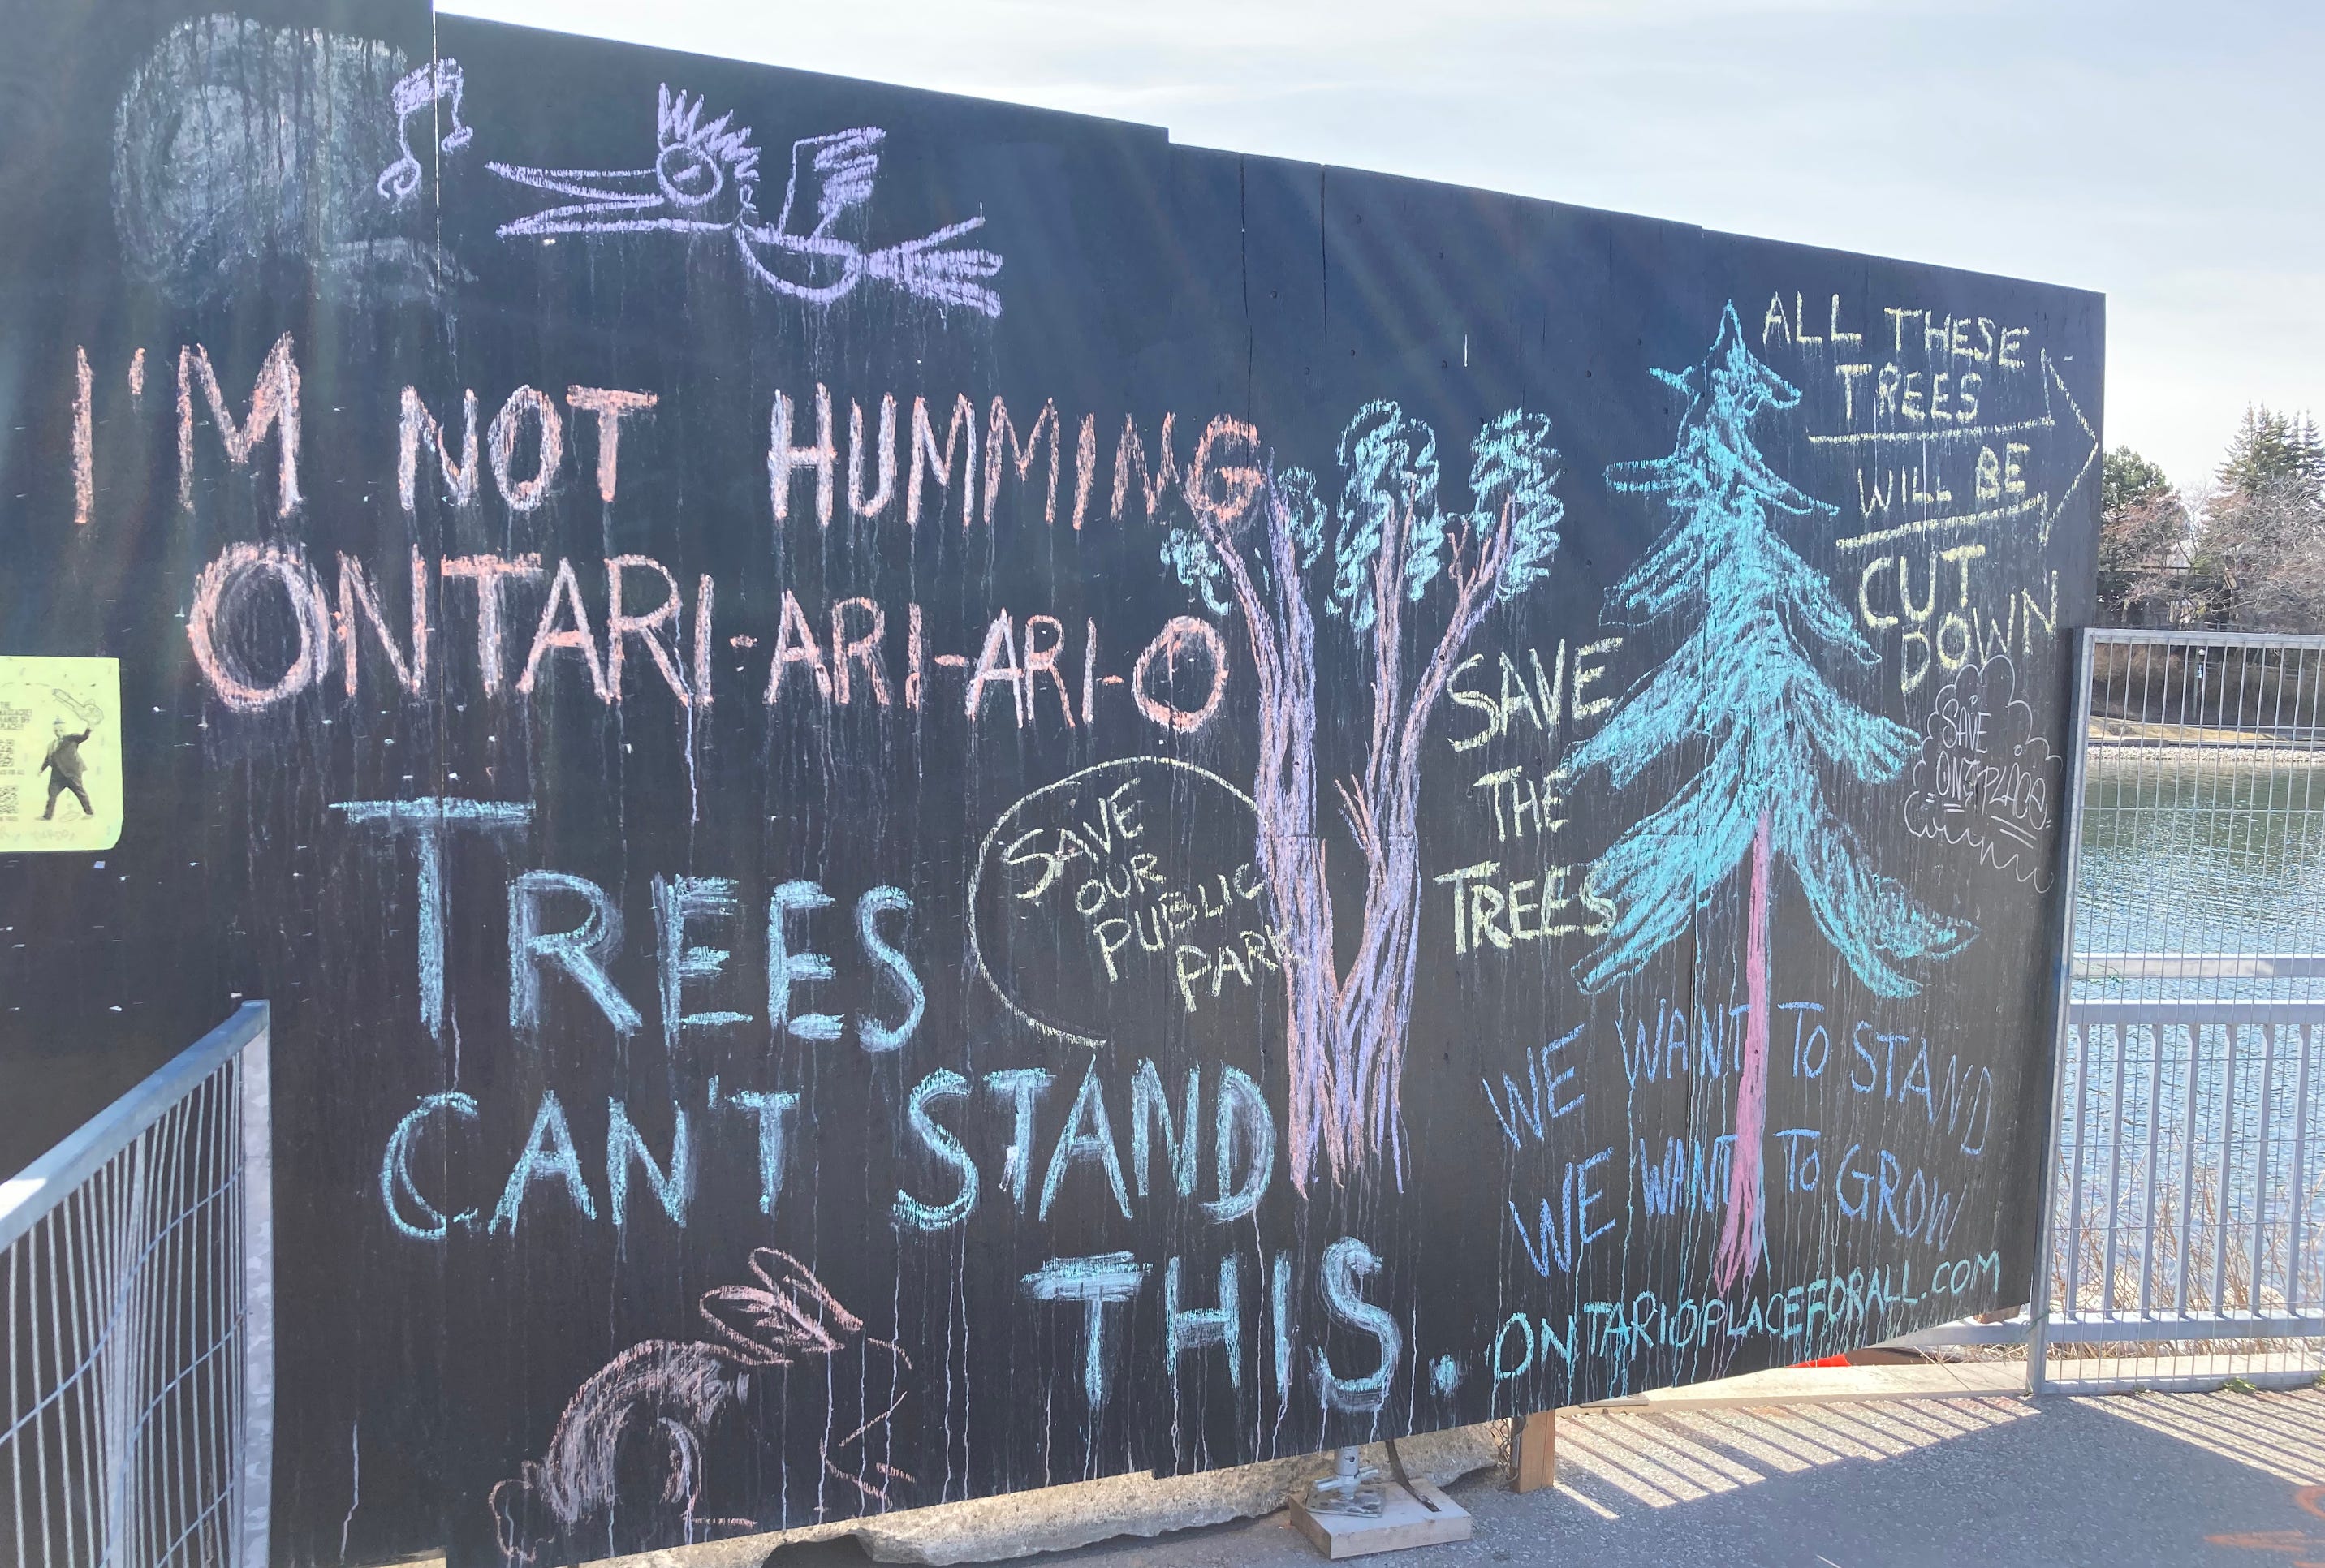 I'M NOT HUMMING
ONTARI-ARI-ARI-O
TREES
CAN'T STAND
THIS.
SAVE
OUR
PUBLIC
PARK
SAVE
THE
TREES
ALL THESE
TREES
WILL BE
CUT
DOWN
SAVE
ONT PLACE
WE WANT TO STAND
WE WANT TO GROW
ONTARIOPLACEFORALL.COM